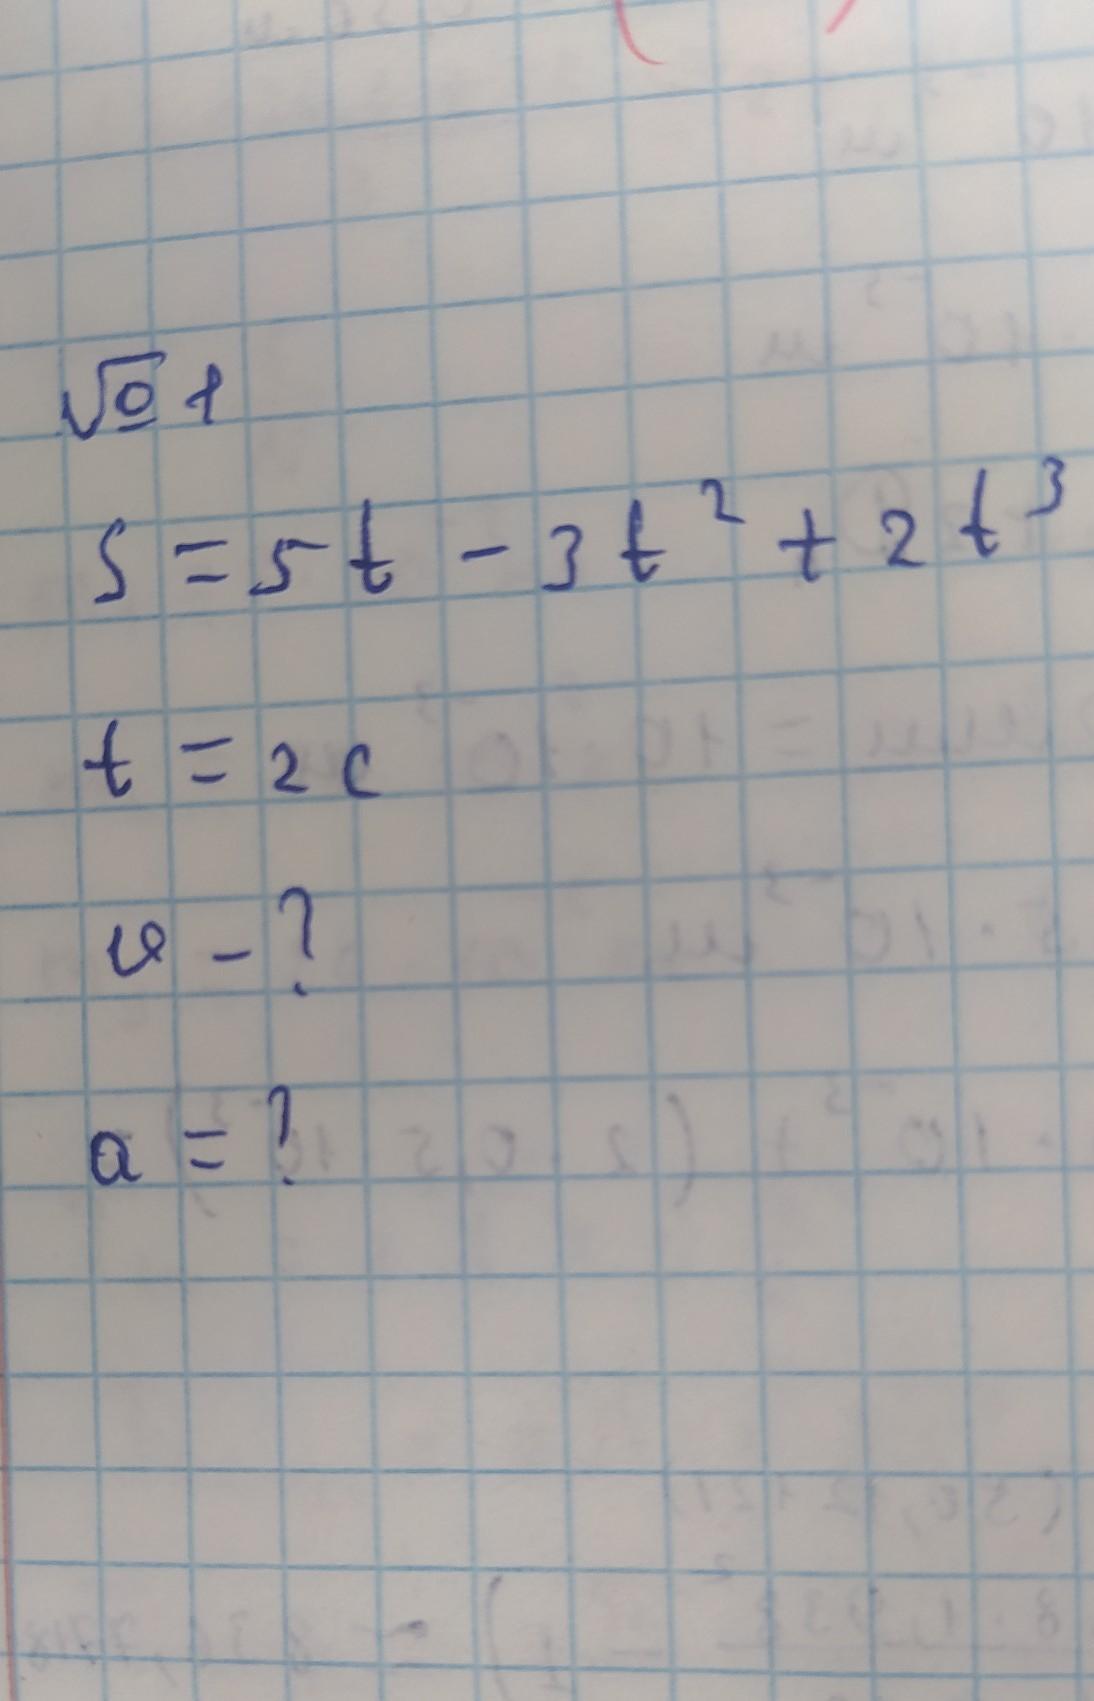 № 1
S = 5t - 3t² + 2t³
t = 2c
v - ?
a = ?